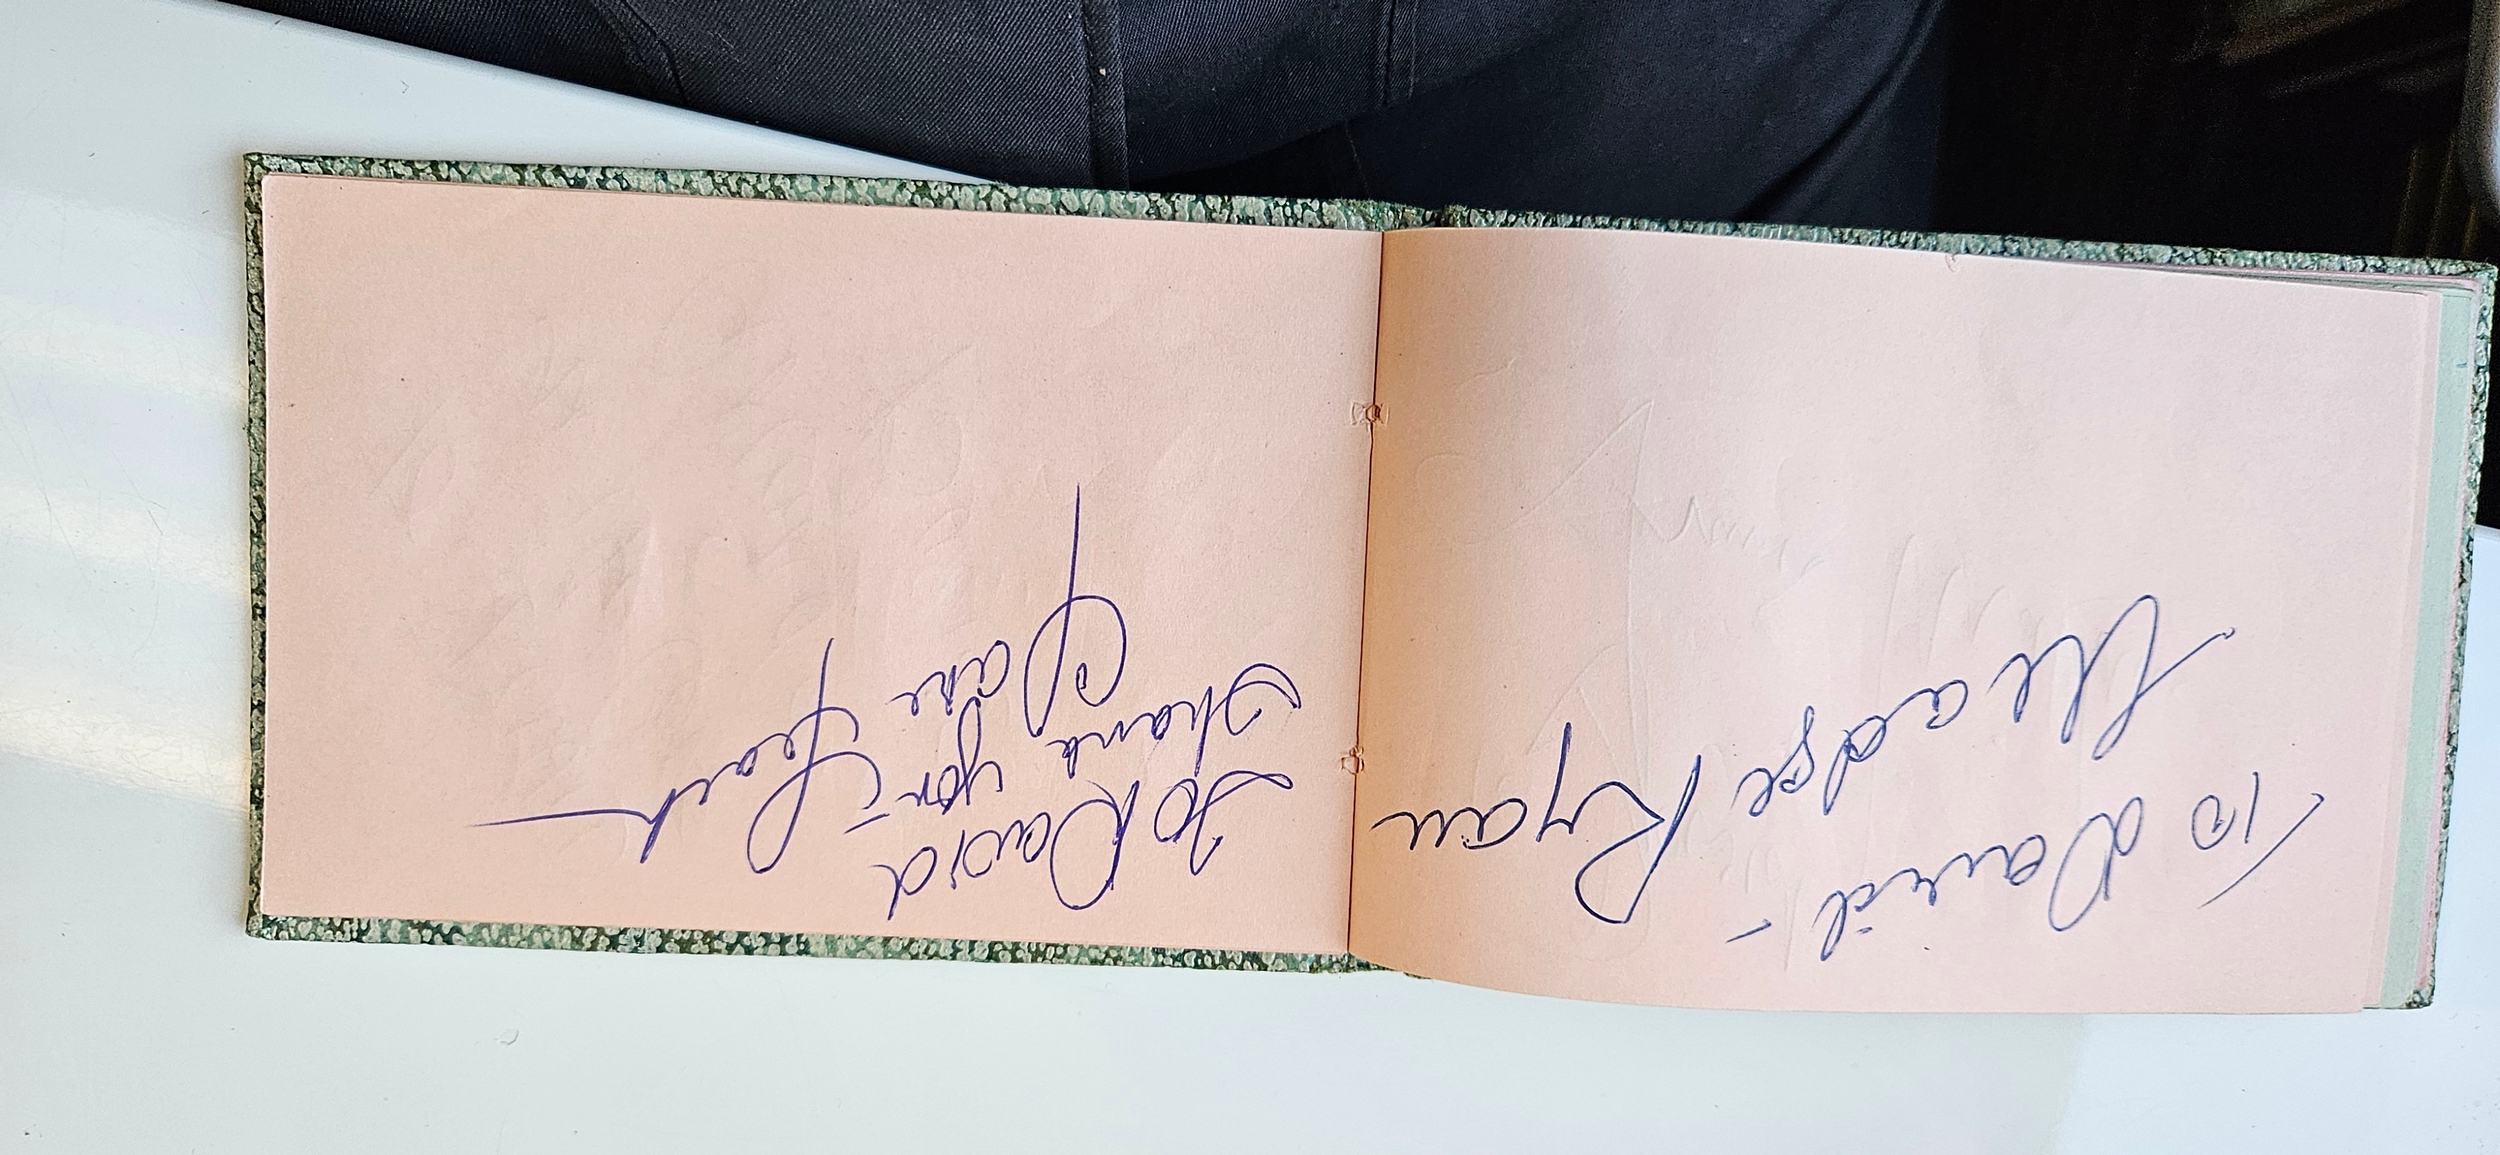 To David -
Madge Ryan
To David
Thank you -
Jane